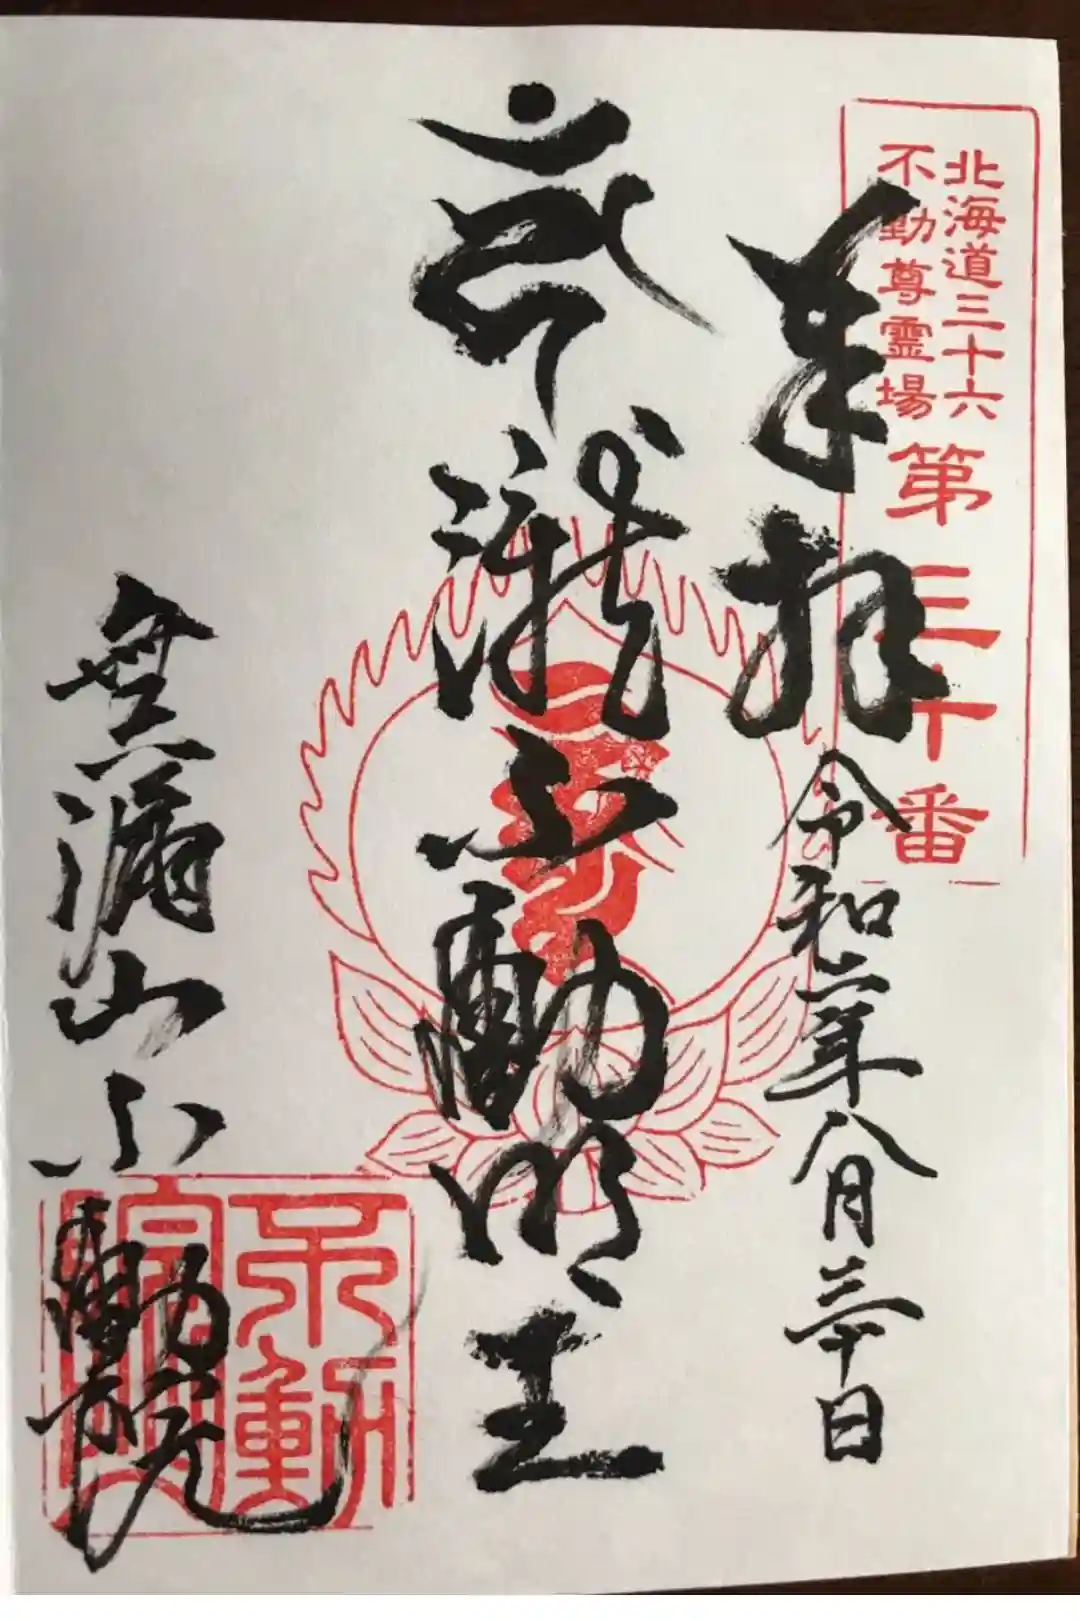 北海道三十六
不動尊霊場
第三十番
奉拝
令和二年八月三十日
瀧不動明王
無漏山不動院
不動院